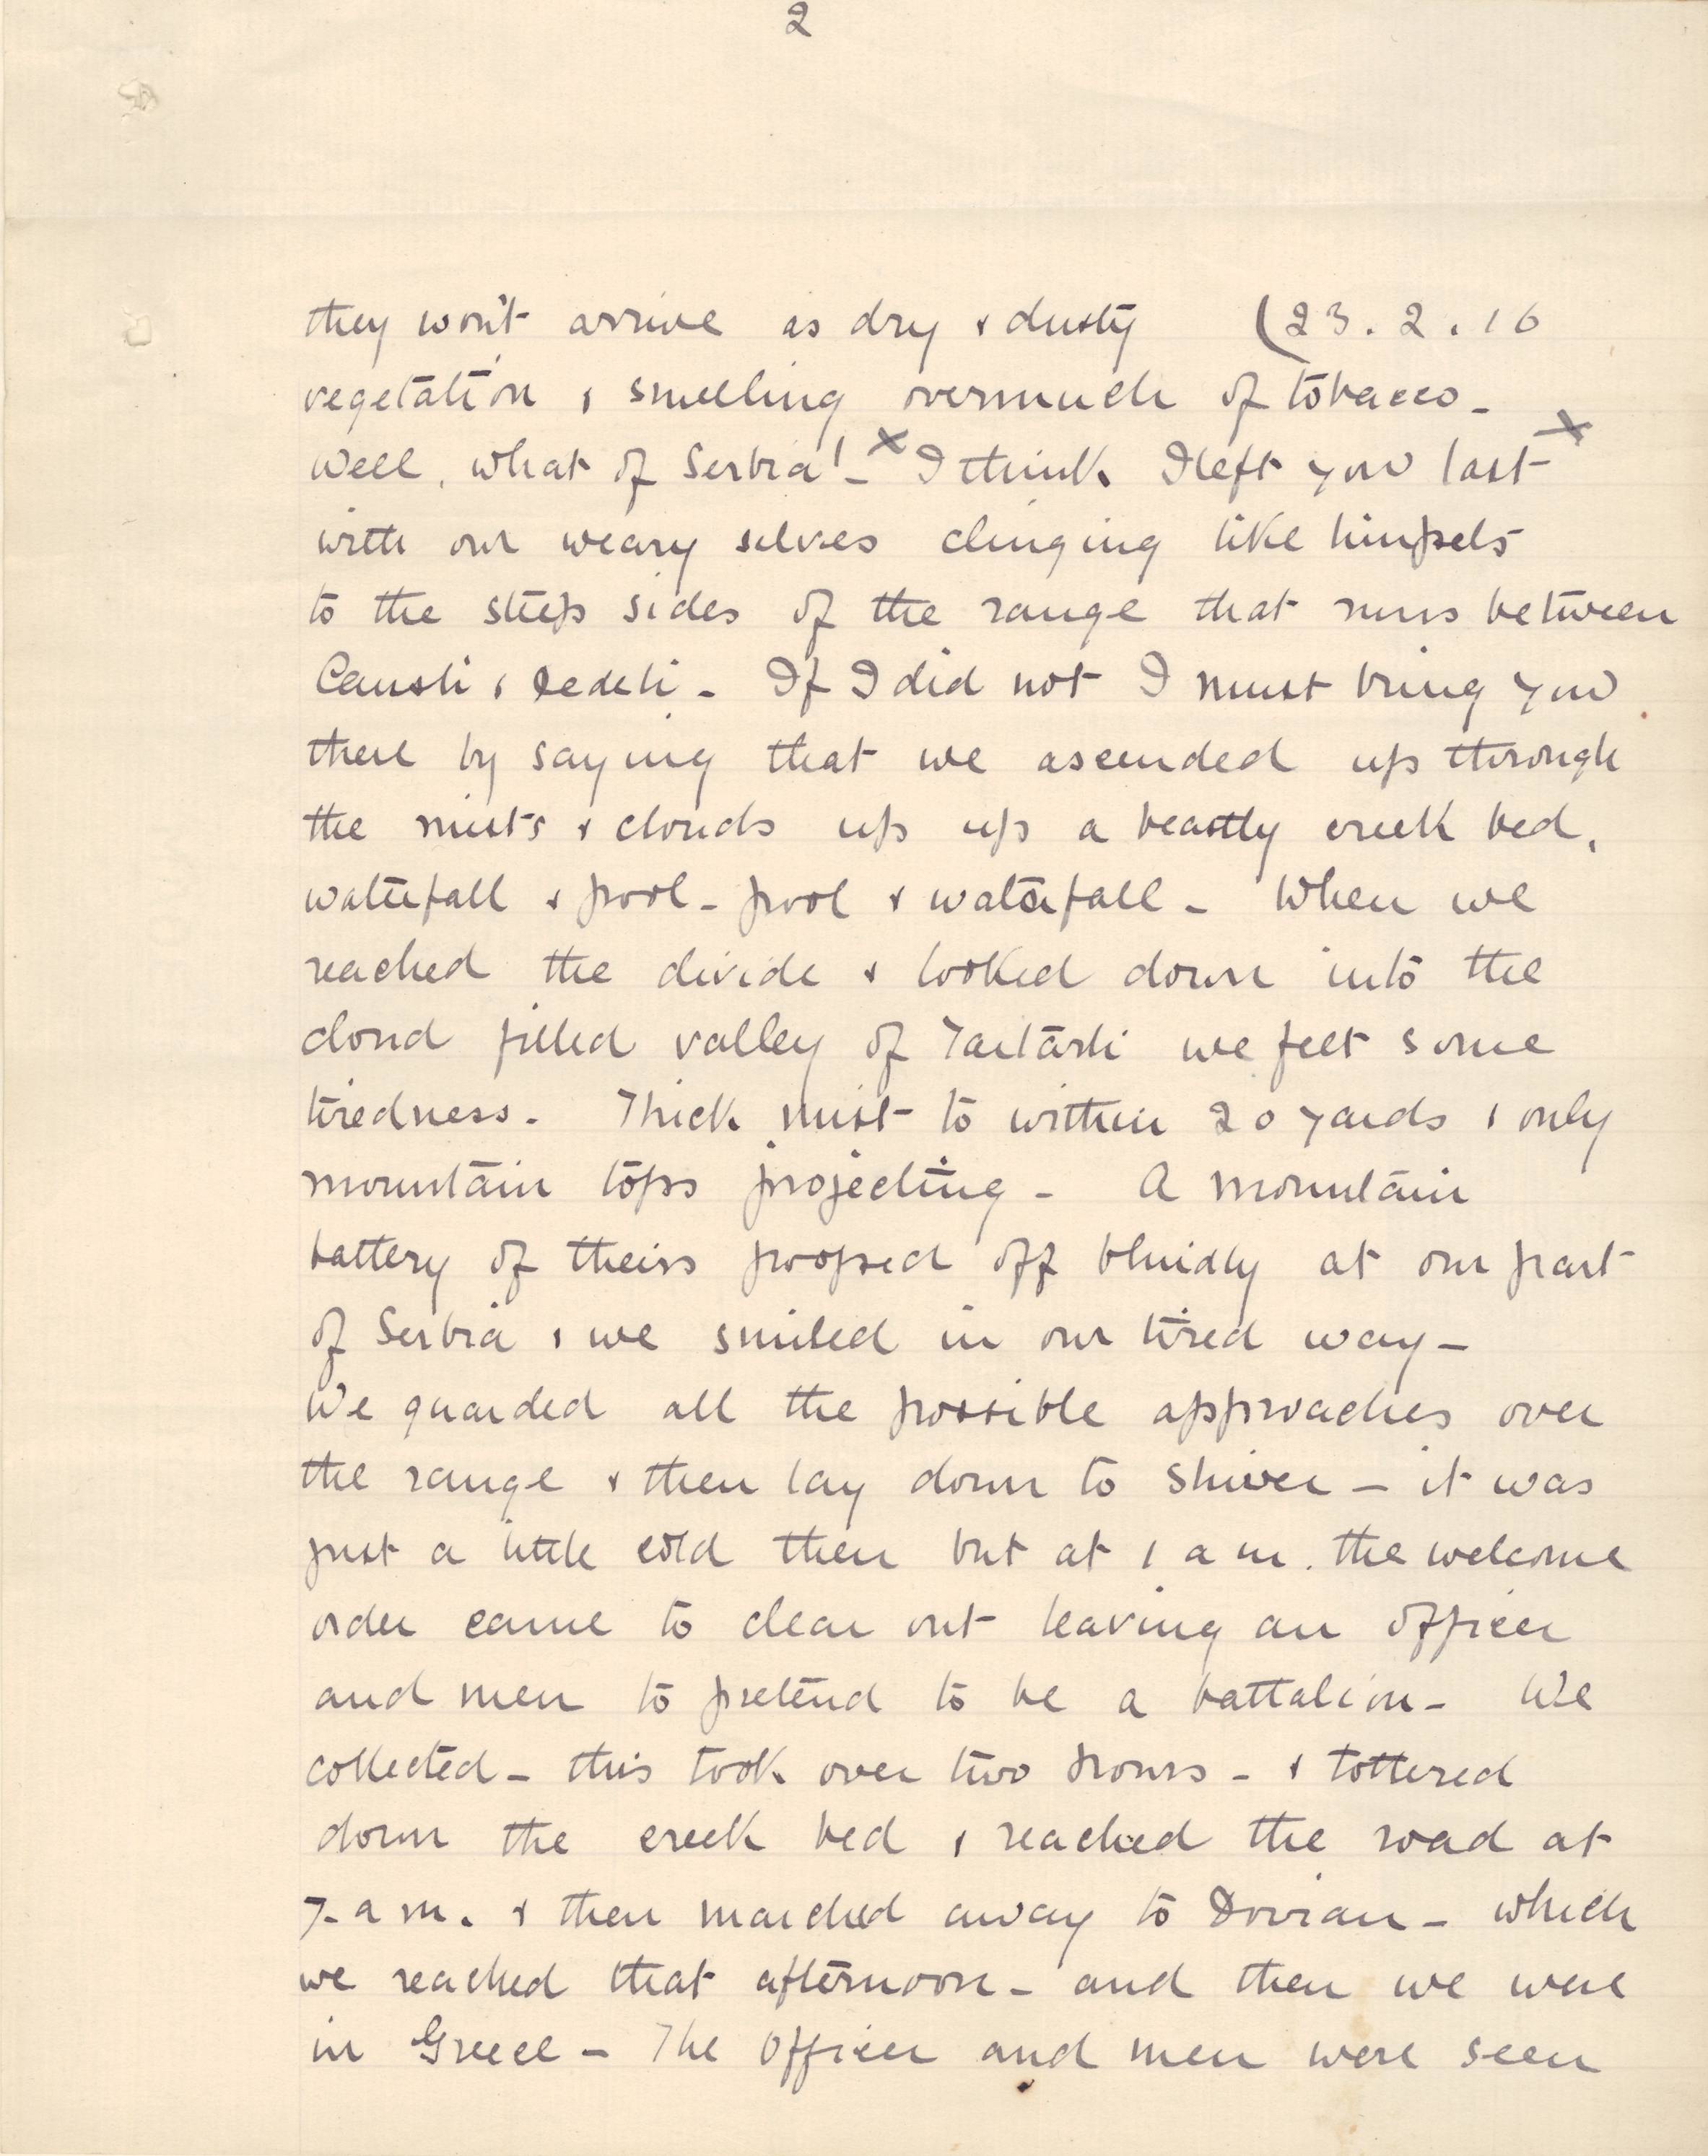 2
they won't arrive as dry & dusty (23.2.16
vegetation & smelling overmuch of tobacco -
Well, what of Serbia! - x I think I left you last x
with our weary selves clinging like limpets
to the steep sides of the range that runs between
Causli & Dedeli - If I did not I must bring you
there by saying that we ascended up through
the mists & clouds up up a beastly creek bed,
waterfall & pool - pool & waterfall - When we
reached the divide & looked down into the
cloud filled valley of Tartarli we felt some
tiredness - Thick mist to within 20 yards & only
mountain tops projecting - A mountain
battery of theirs pooped off blindly at our part
of Serbia & we smiled in our tired way -
We guarded all the possible approaches over
the range & then lay down to shiver - it was
just a little cold then but at 1 a m. the welcome
order came to clear out leaving an officer
and men to pretend to be a battalion - We
collected - this took over two hours - & tottered
down the creek bed & reached the road at
7 - a m. & then marched away to Doiran - which
we reached that afternoon - and then we were
in Greece - The Officer and men were seen